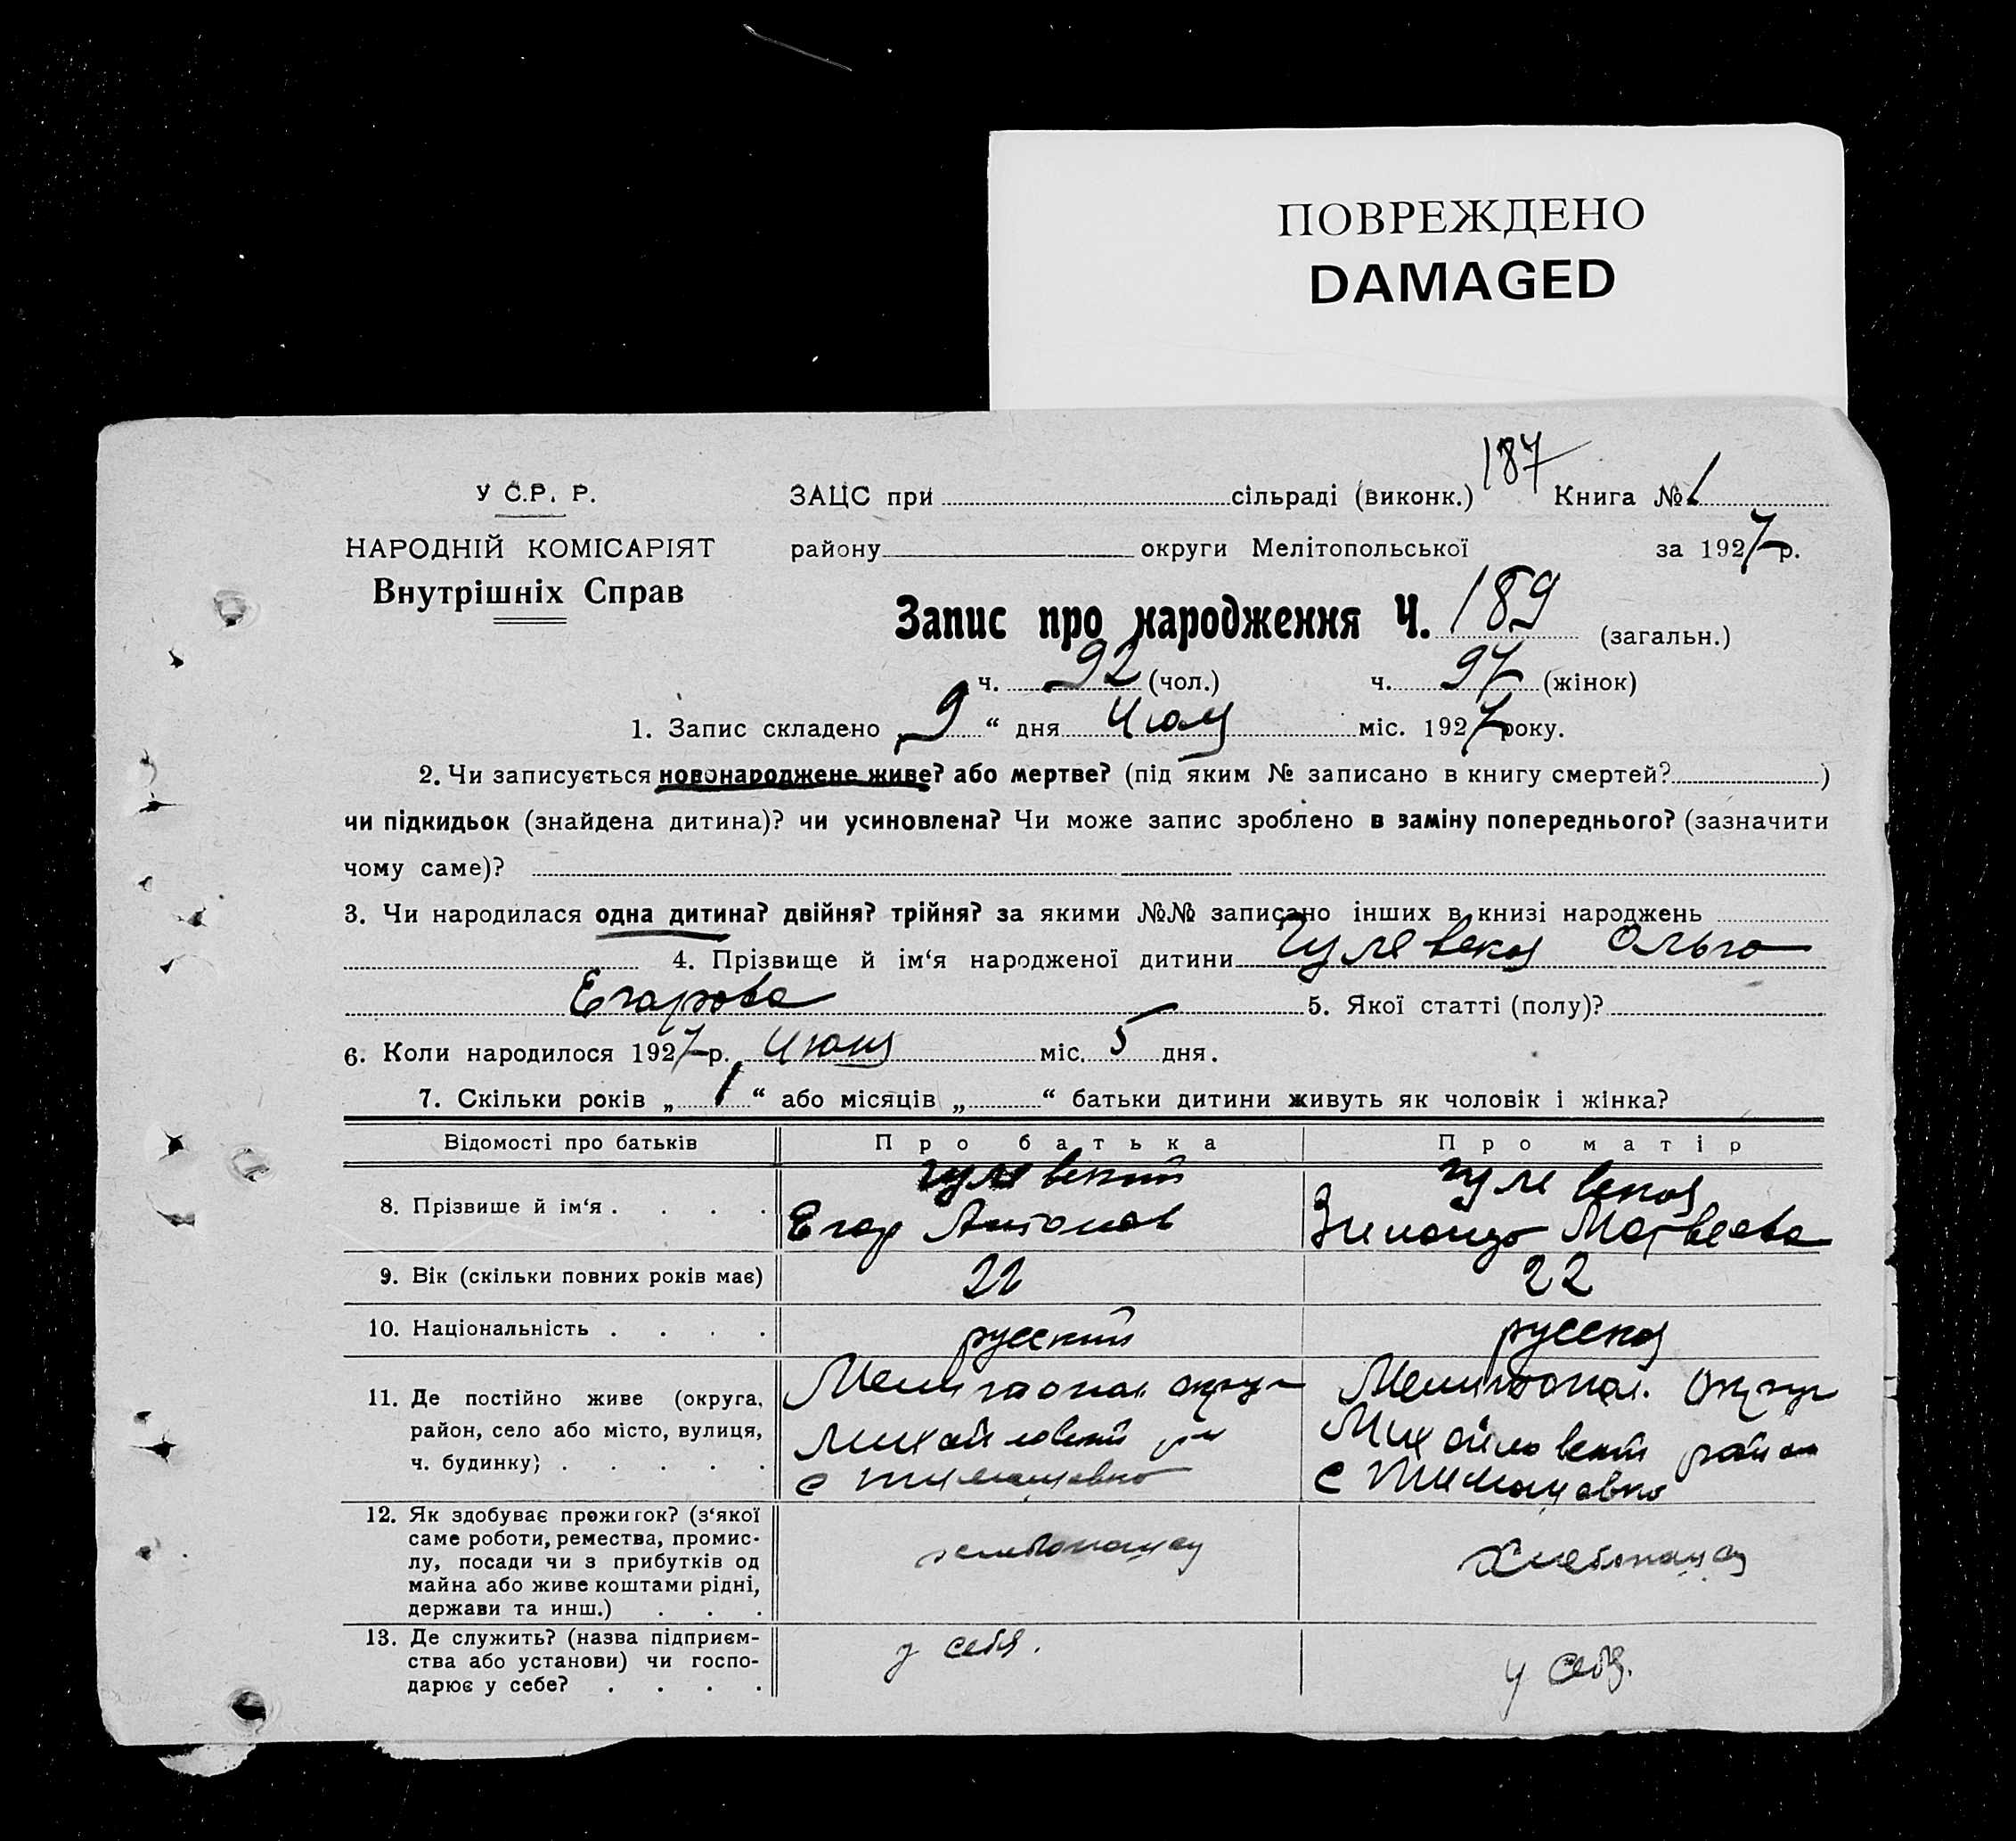 ПОВРЕЖДЕНО
DAMAGED
187
У С.Р. Р.
ЗАЦС при сільраді (виконк.) Книга № 1
НАРОДНІЙ КОМІСАРІЯТ
району округи Мелітопольської за 1927 р.
Внутрішніх Справ
Запис про народження Ч. 189 (загальн.)
ч. 92 (чол.) ч. 97 (жінок)
1. Запис складено „9“ дня міс. 1927 року.
2. Чи записується новонароджене живе? або мертве? (під яким № записано в книгу смертей? )
чи підкидьок (знайдена дитина)? чи усиновлена? Чи може запис зроблено в заміну попереднього? (зазначити
чому саме)?
3. Чи народилася одна дитина? двійня? трійня? за якими №№ записано інших в книзі народжень
4. Прізвище й ім‘я народженої дитини Гулевская Ольга
Егорова 5. Якої статті (полу)?
6. Коли народилося 1927 р. Июня міс. 5 дня.
7. Скільки років „1“ або місяців „ “ батьки дитини живуть як чоловік і жінка?
Відомості про батьків Про батька Про матір
8. Прізвище й ім‘я . . . . Гулевский Гулевская
Егор Антонов Зинаида Матвеева
9. Вік (скільки повних років має) 22 22
10. Національність . . . . русский русская
11. Де постійно живе (округа, Мелитопол. округ Мелитопол. Округ
район, село або місто, вулиця, Михайловский р-н Михайловский район
ч. будинку) . . . . . с Тимашовка с Тимашовка
12. Як здобуває прожиток? (з‘якої
саме роботи, ремества, промис-
лу, посади чи з прибутків од хлебопашец хлебопашец
майна або живе коштами рідні,
держави та инш.) . . .
13. Де служить? (назва підприєм- у себя. у себя.
ства або установи) чи госпо-
дарює у себе? . . . .